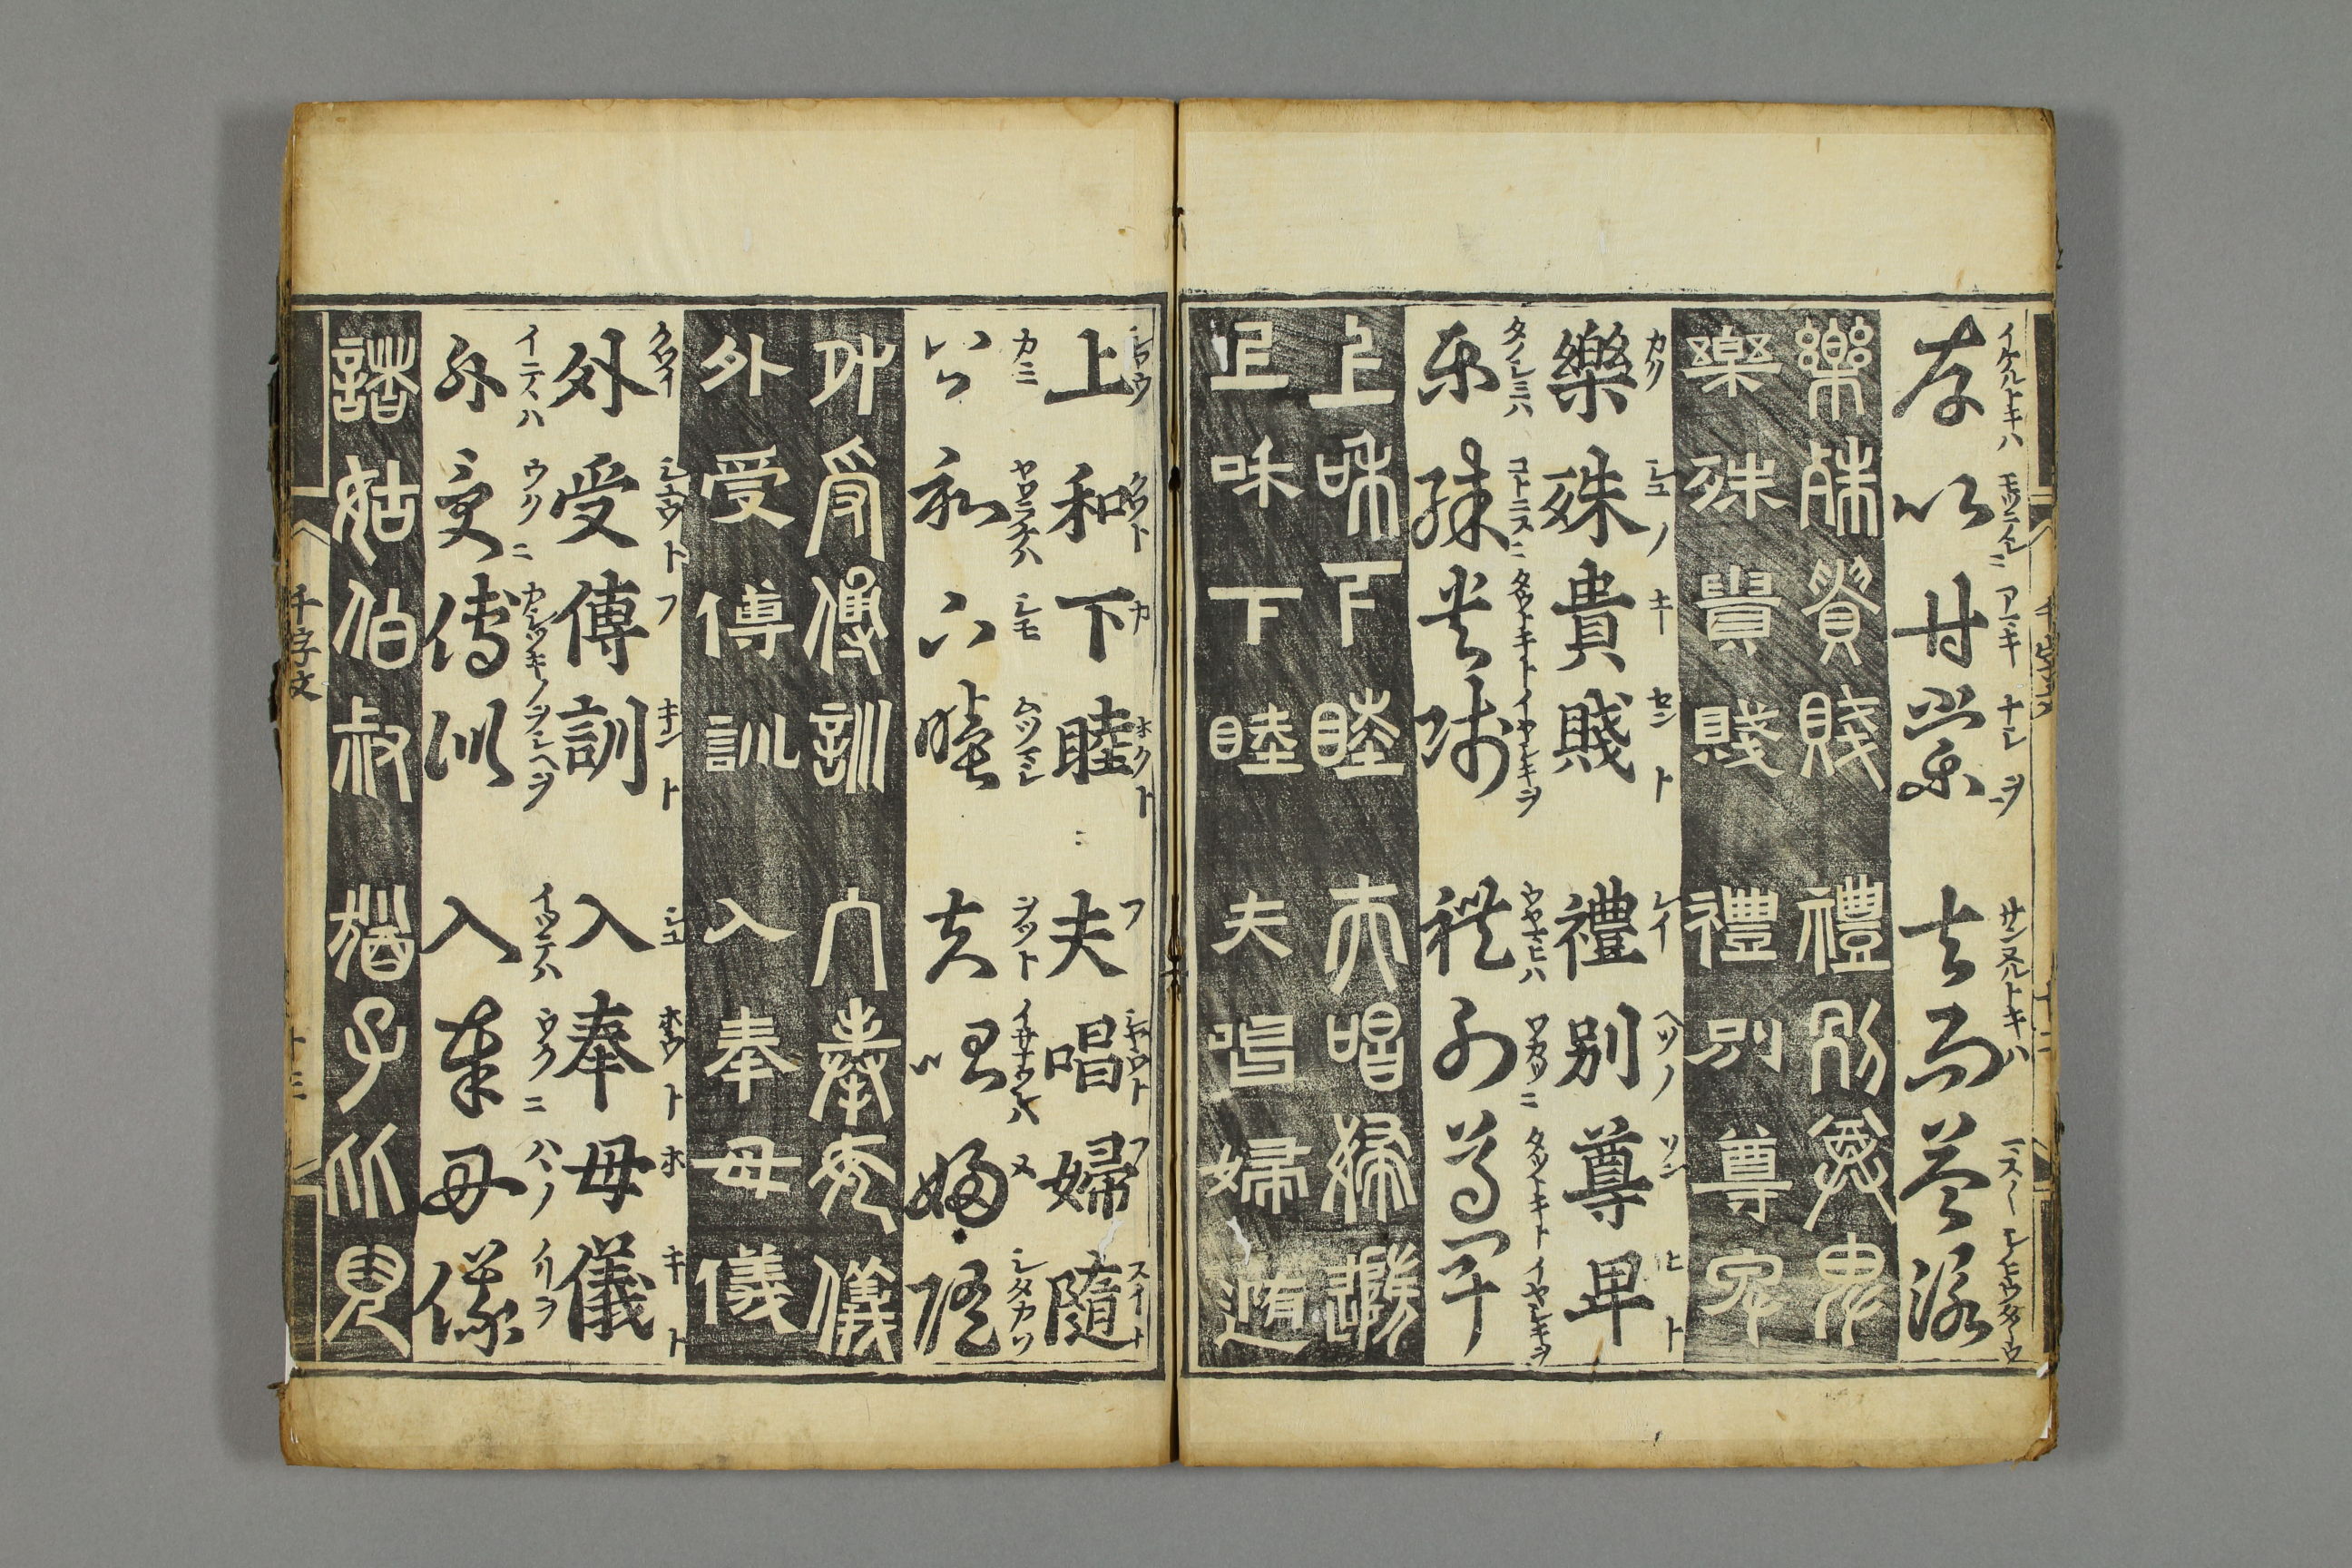 存以甘棠 去而益詠
イケルトキハ モツニイレニ アマキ ナシヲ サンヌルトキハ
樂殊貴賤 禮別尊卑
樂殊貴賤 禮別尊卑
ガク シユノ キ センド レイ ヘツノ ソン ヒト
樂殊貴賤 禮別尊卑
タノシミハ コトニス タツトキトイヤシキヲ ウヤマヒハ ワカツニ タツトキトイヤシキヲ
樂殊貴賤 禮別尊卑
上和下睦 夫唱婦隨
上和下睦 夫唱婦隨
千字文
十二
シヤウ クワト カ ホクト フ シヤウト フ スイナ
上和下睦 夫唱婦隨
カミ ヤワラケハ シモ ムツマシ ヲツト イサナウハ メ シタカツ
上和下睦 夫唱婦隨
外受傅訓 入奉母儀
外受傅訓 入奉母儀
クワイ シユウト フ キント シユ ホウト ホ キト
外受傅訓 入奉母儀
イニスハ ウクニ カシツキノヲシヘヲ イツテハ ウクニ ハハノ
外受傅訓 入奉母儀
諸姑伯叔 猶子比兒
千字文
十三